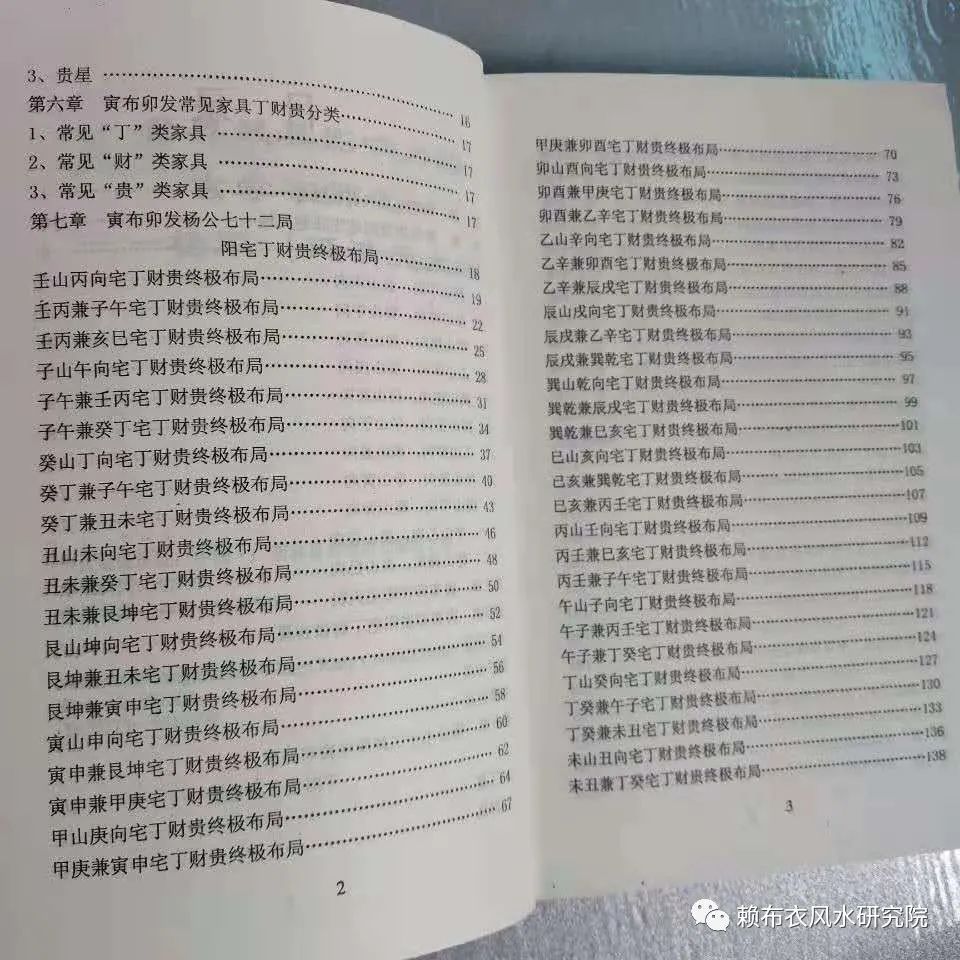 3、贵星……………………16
第六章 寅布卯发常见家具丁财贵分类……………………17
1、常见“丁”类家具……………………17
2、常见“财”类家具……………………17
3、常见“贵”类家具……………………17
第七章 寅布卯发杨公七十二局
阳宅丁财贵终极布局……………………18
壬山丙向宅丁财贵终极布局……………………19
壬丙兼子午宅丁财贵终极布局……………………22
壬丙兼亥巳宅丁财贵终极布局……………………25
子山午向宅丁财贵终极布局……………………28
子午兼壬丙宅丁财贵终极布局……………………31
子午兼癸丁宅丁财贵终极布局……………………34
癸山丁向宅丁财贵终极布局……………………37
癸丁兼子午宅丁财贵终极布局……………………40
癸丁兼丑未宅丁财贵终极布局……………………43
丑山未向宅丁财贵终极布局……………………46
丑未兼癸丁宅丁财贵终极布局……………………48
丑未兼艮坤宅丁财贵终极布局……………………50
艮山坤向宅丁财贵终极布局……………………52
艮坤兼丑未宅丁财贵终极布局……………………54
艮坤兼寅申宅丁财贵终极布局……………………56
寅山申向宅丁财贵终极布局……………………58
寅申兼艮坤宅丁财贵终极布局……………………60
寅申兼甲庚宅丁财贵终极布局……………………62
甲山庚向宅丁财贵终极布局……………………64
甲庚兼寅申宅丁财贵终极布局……………………67
2
甲庚兼卯酉宅丁财贵终极布局……………………70
卯山酉向宅丁财贵终极布局……………………73
卯酉兼甲庚宅丁财贵终极布局……………………76
卯酉兼乙辛宅丁财贵终极布局……………………79
乙山辛向宅丁财贵终极布局……………………82
乙辛兼卯酉宅丁财贵终极布局……………………85
乙辛兼辰戌宅丁财贵终极布局……………………88
辰山戌向宅丁财贵终极布局……………………91
辰戌兼乙辛宅丁财贵终极布局……………………93
辰戌兼巽乾宅丁财贵终极布局……………………95
巽山乾向宅丁财贵终极布局……………………97
巽乾兼辰戌宅丁财贵终极布局……………………99
巽乾兼巳亥宅丁财贵终极布局……………………101
巳山亥向宅丁财贵终极布局……………………103
巳亥兼巽乾宅丁财贵终极布局……………………105
巳亥兼丙壬宅丁财贵终极布局……………………107
丙山壬向宅丁财贵终极布局……………………109
丙壬兼巳亥宅丁财贵终极布局……………………112
丙壬兼子午宅丁财贵终极布局……………………115
午山子向宅丁财贵终极布局……………………118
午子兼丙壬宅丁财贵终极布局……………………121
午子兼丁癸宅丁财贵终极布局……………………124
丁山癸向宅丁财贵终极布局……………………127
丁癸兼午子宅丁财贵终极布局……………………130
丁癸兼未丑宅丁财贵终极布局……………………133
未山丑向宅丁财贵终极布局……………………136
未丑兼丁癸宅丁财贵终极布局……………………138
3
赖布衣风水研究院